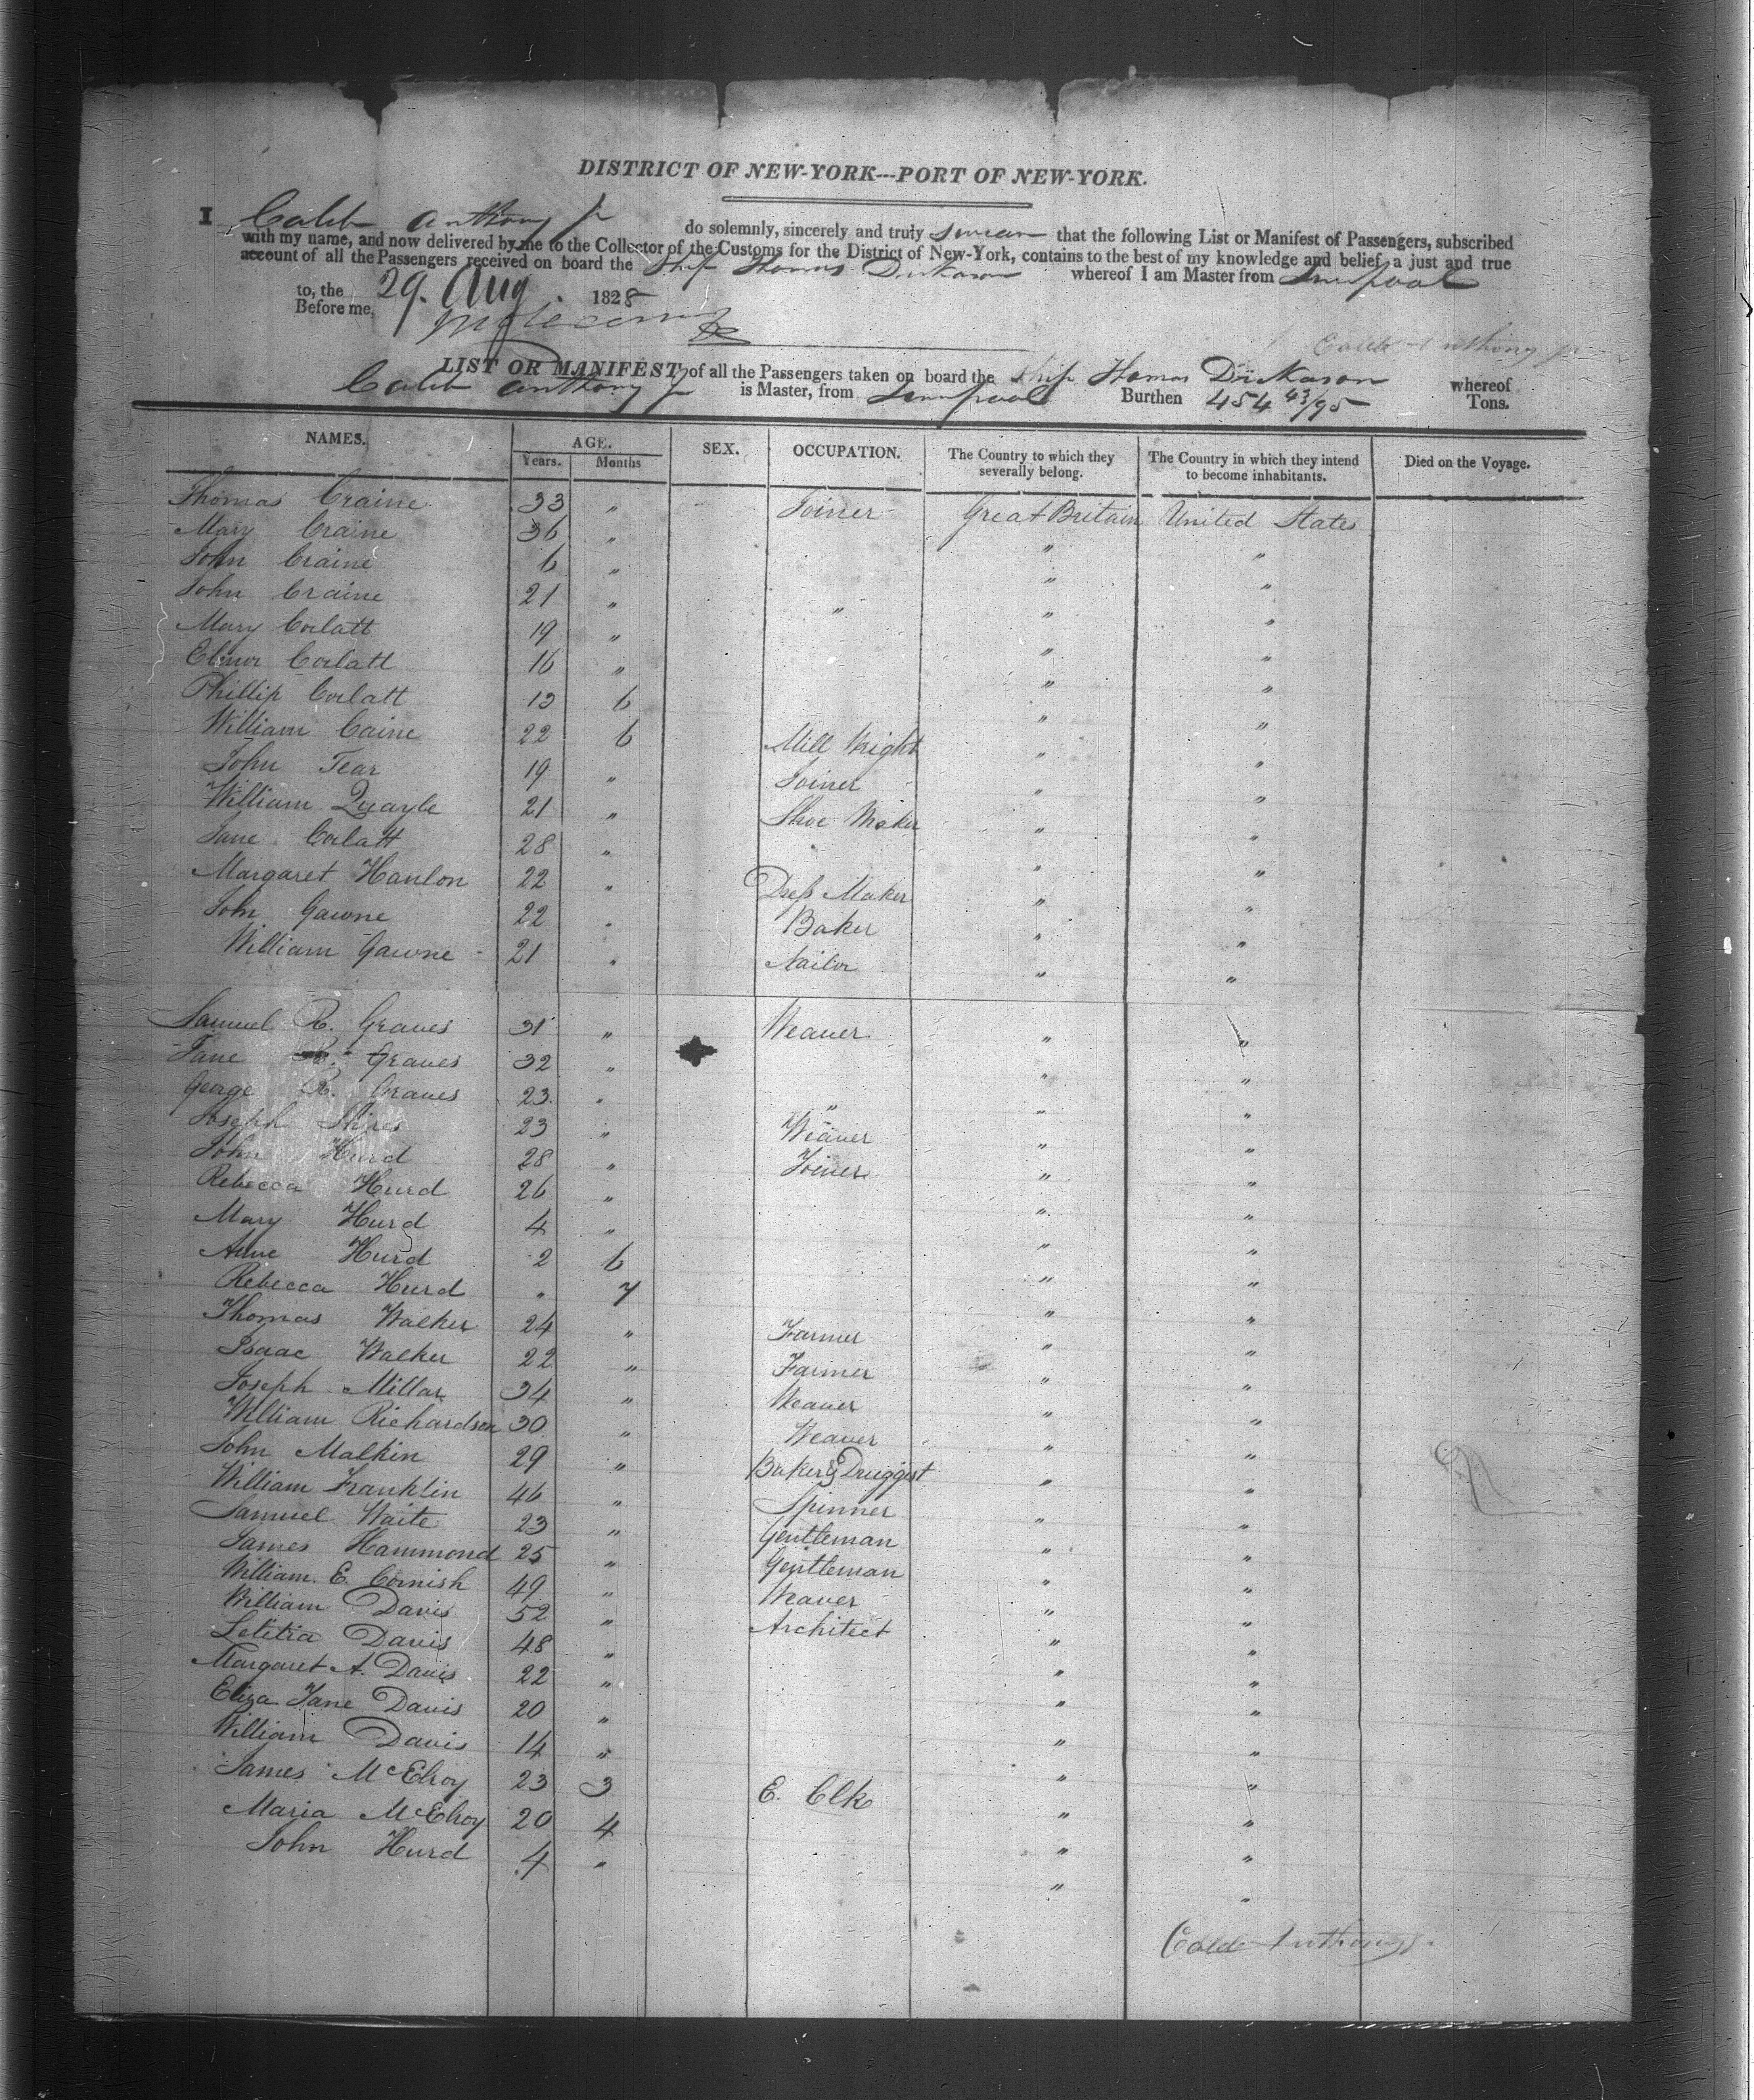 DISTRICT OF NEW-YORK---PORT OF NEW-YORK.
I Caleb Anthony Jr do solemnly, sincerely and truly swear that the following List or Manifest of Passengers, subscribed
with my name, and now delivered by me to the Collector of the Customs for the District of New-York, contains to the best of my knowledge and belief, a just and true
account of all the Passengers received on board the Ship Thomas Dickason whereof I am Master from Liverpool
to, the 29. Aug. 1828
Before me,
Caleb Anthony Jr
LIST OR MANIFEST of all the Passengers taken on board the Ship Thomas Dickason whereof
Caleb Anthony Jr is Master, from Liverpool Burthen 454 43/95 Tons.
NAMES. AGE. SEX. OCCUPATION. The Country to which they severally belong. The Country in which they intend to become inhabitants. Died on the Voyage.
Years. Months
Thomas Craine 33 " Joiner Great Britain United States
Mary Craine 36 " " "
John Craine 6 " " "
John Craine 21 " " " "
Mary Corlatt 19 " " "
Elinor Corlatt 16 " " "
Phillip Corlatt 13 6 " "
William Caine 22 6 Mill Wright " "
John Tear 19 " Joiner " "
William Quayle 21 " Shoe Maker " "
Jane Corlatt 28 " " "
Margaret Hanlon 22 " Dress Maker " "
John Gawne 22 " Baker " "
William Gawne 21 " Nailor " "
Samuel R. Graves 31 " Weaver " "
Jane Graves 32 " " "
George R. Graves 23 " " " "
Joseph Shires 23 " Weaver " "
John Hurd 28 " Joiner " "
Rebecca Hurd 26 " " "
Mary Hurd 4 " " "
Anne Hurd 2 6 " "
Rebecca Hurd " 7 " "
Thomas Walker 24 " Farmer " "
Isaac Walker 22 " Farmer " "
Joseph Millar 34 " Weaver " "
William Richardson 30 " Weaver " "
John Malkin 29 " Baker & Druggist " "
William Franklin 46 " Spinner " "
Samuel Waite 23 " Gentleman " "
James Hammond 25 " Gentleman " "
William E. Cornish 49 " Weaver " "
William Davis 52 " Architect " "
Letitia Davis 48 " " "
Margaret A. Davis 22 " " "
Eliza Jane Davis 20 " " "
William Davis 14 " " "
James McElroy 23 3 E. Clk " "
Maria McElroy 20 4 " "
John Hurd 4 " " "
Caleb Anthony Jr.